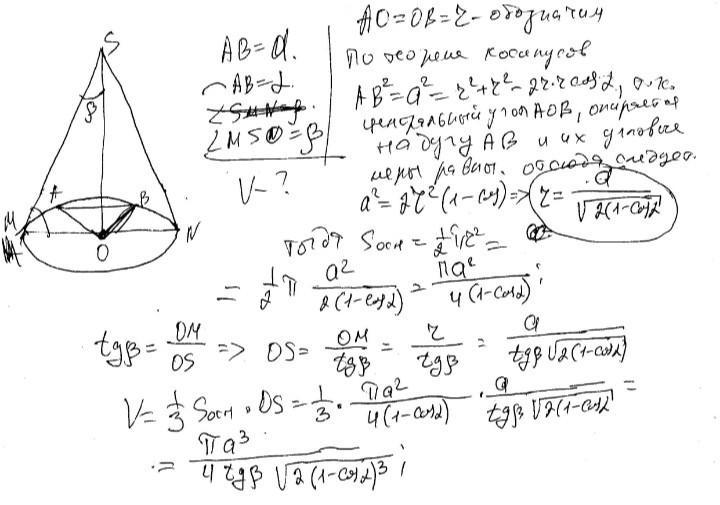 S
β
A
B
M
N
O
AB = α.
⌒AB = α.
∠MSO = β
V - ?
AO = OB = r - обозначим
По теореме косинусов
AB² = a² = r² + r² - 2r·r cos α, т.к.
центральный угол AOB, опирается
на дугу AB и их угловые
меры равны. отсюда следует.
a² = 2r²(1 - cos) => r = a / √2(1-cos α
тогда Sосн = 1/2 πr² =
= 1/2 π a² / 2(1-cos α) = πa² / 4(1-cos α) ;
tg β = OM / OS => OS = OM / tg β = r / tg β = a / tg β √2(1-cos α)
V = 1/3 Sосн · OS = 1/3 · πa² / 4(1-cos α) · a / tg β √2(1-cos α =
= πa³ / 4 tg β √2(1-cos α)³ ;